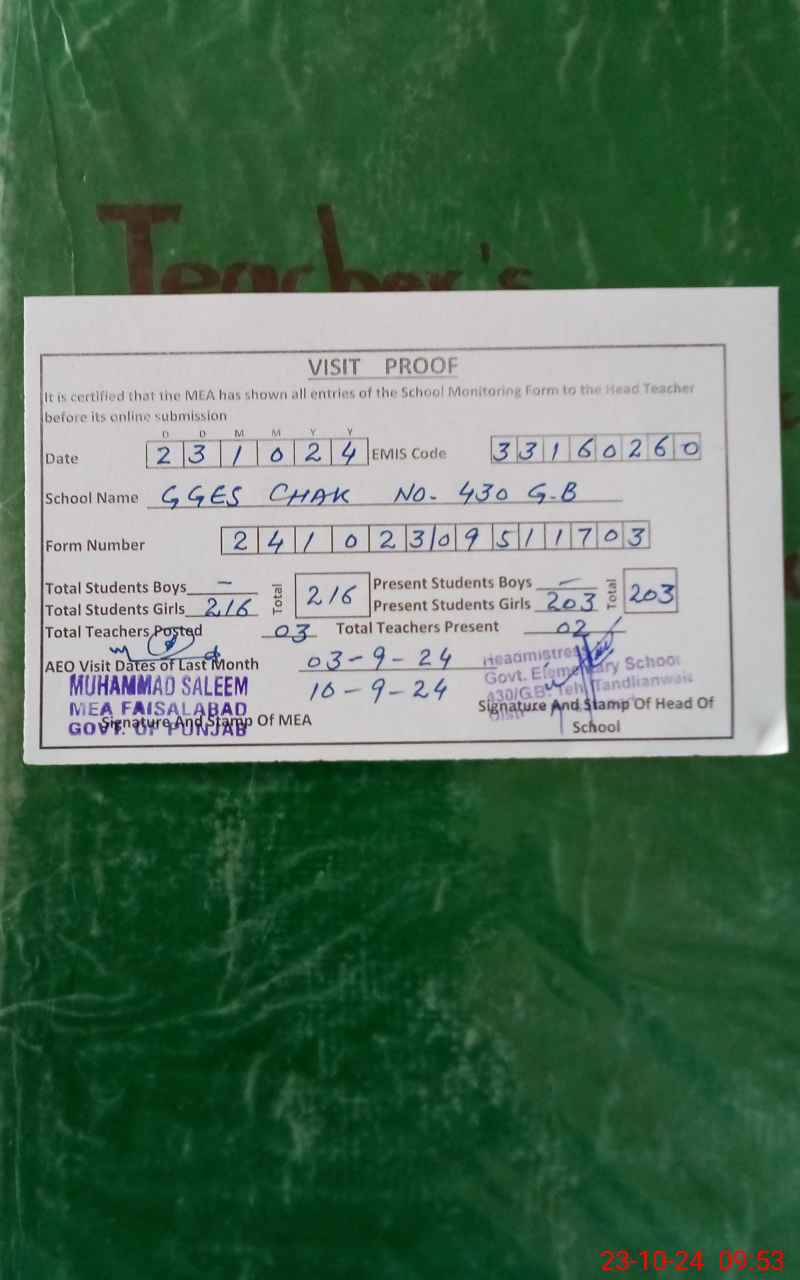 Teacher's
VISIT PROOF
It is certified that the MEA has shown all entries of the School Monitoring Form to the Head Teacher
before its online submission
D D M M Y Y
Date 2 3 1 0 2 4 EMIS Code 3 3 1 6 0 2 6 0
School Name GGES CHAK NO. 430 G.B
Form Number 2 4 1 0 2 3 0 9 5 1 1 7 0 3
Total Students Boys — Total 216 Present Students Boys — Total 203
Total Students Girls 216 Present Students Girls 203
Total Teachers Posted 03 Total Teachers Present 02
AEO Visit Dates of Last Month 03-9-24
10-9-24
MUHAMMAD SALEEM
MEA FAISALABAD
GOVT. OF PUNJAB
Signature And Stamp Of MEA
Headmistress
Govt. Elementary School
430/G.B. Teh. Tandlianwala
Distt
Signature And Stamp Of Head Of
School
23-10-24 09:53